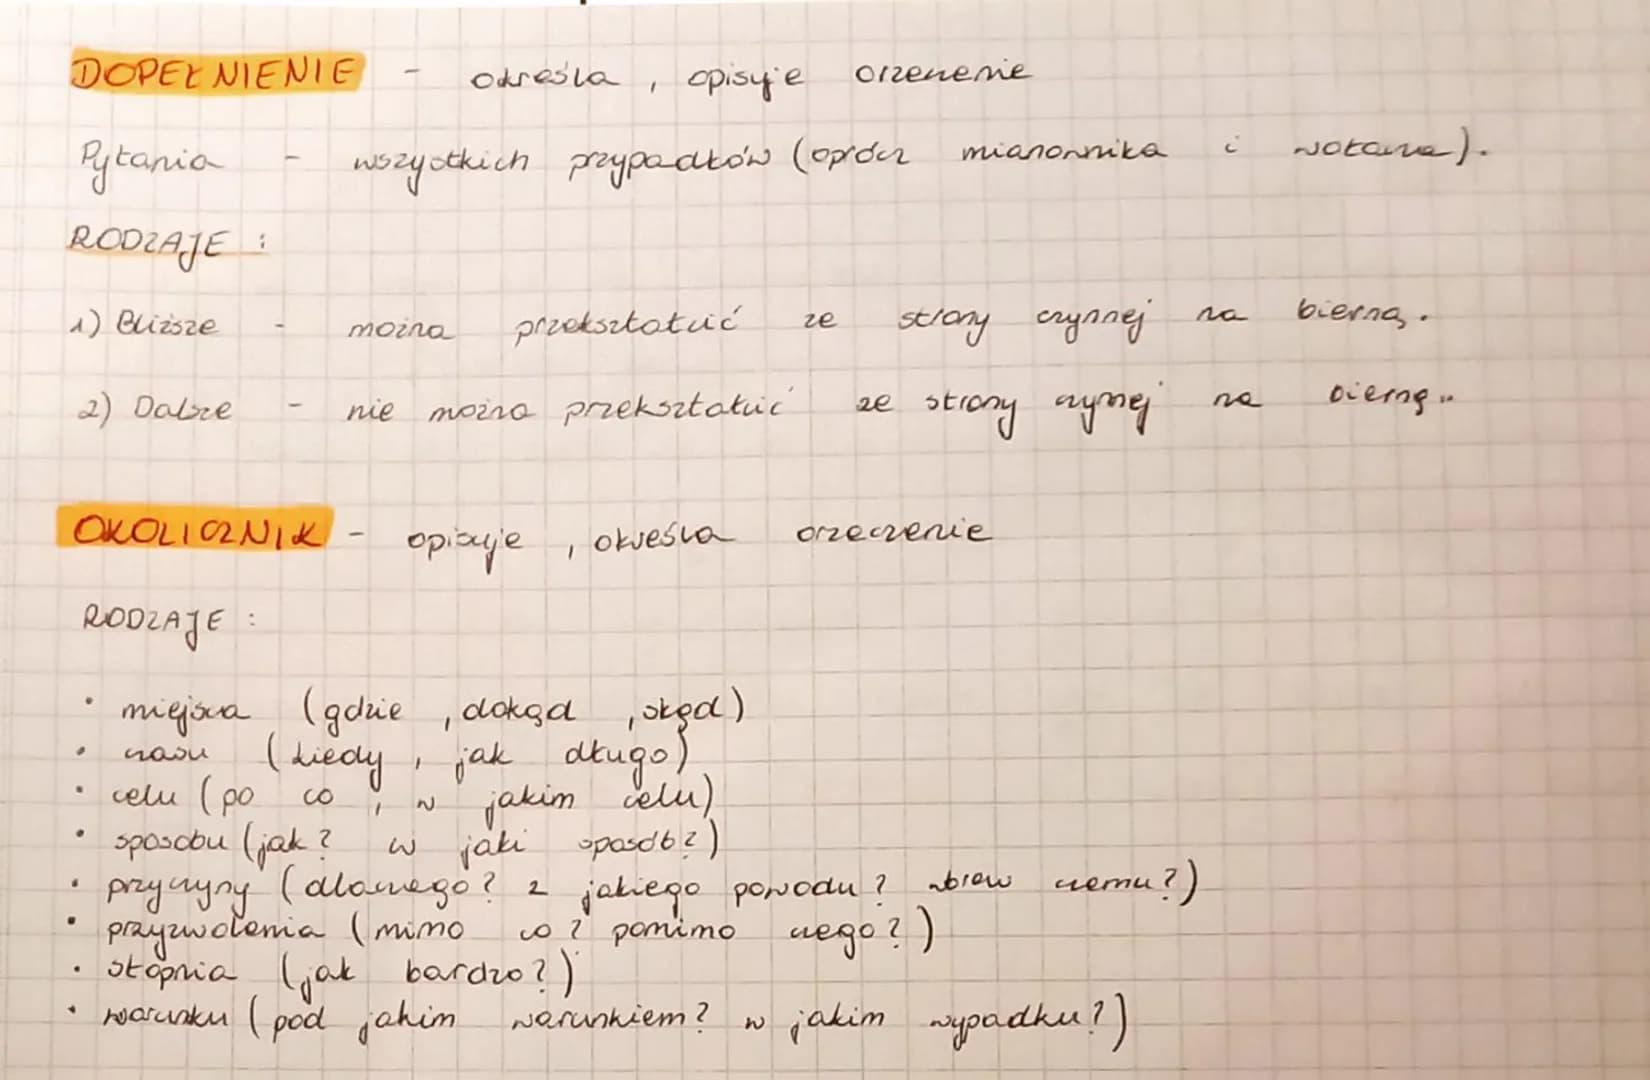 DOPEŁNIENIE - określa , opisuje orzeczenie
Pytania - wszystkich przypadków (oprócz mianownika i wołacza).
RODZAJE :
1) Bliższe - można przekształcić ze strony czynnej na bierną.
2) Dalsze - nie można przekształcić ze strony czynnej na bierną..
OKOLICZNIK - opisuje , określa orzeczenie
RODZAJE :
• miejsca (gdzie , dokąd , skąd)
• czasu (kiedy , jak długo)
• celu (po co , w jakim celu)
• sposobu (jak? w jaki sposób?)
• przyczyny (dlaczego? z jakiego powodu? wbrew czemu?)
• przyzwolenia (mimo co? pomimo czego?)
• stopnia (jak bardzo?)
• warunku (pod jakim warunkiem? w jakim wypadku?)